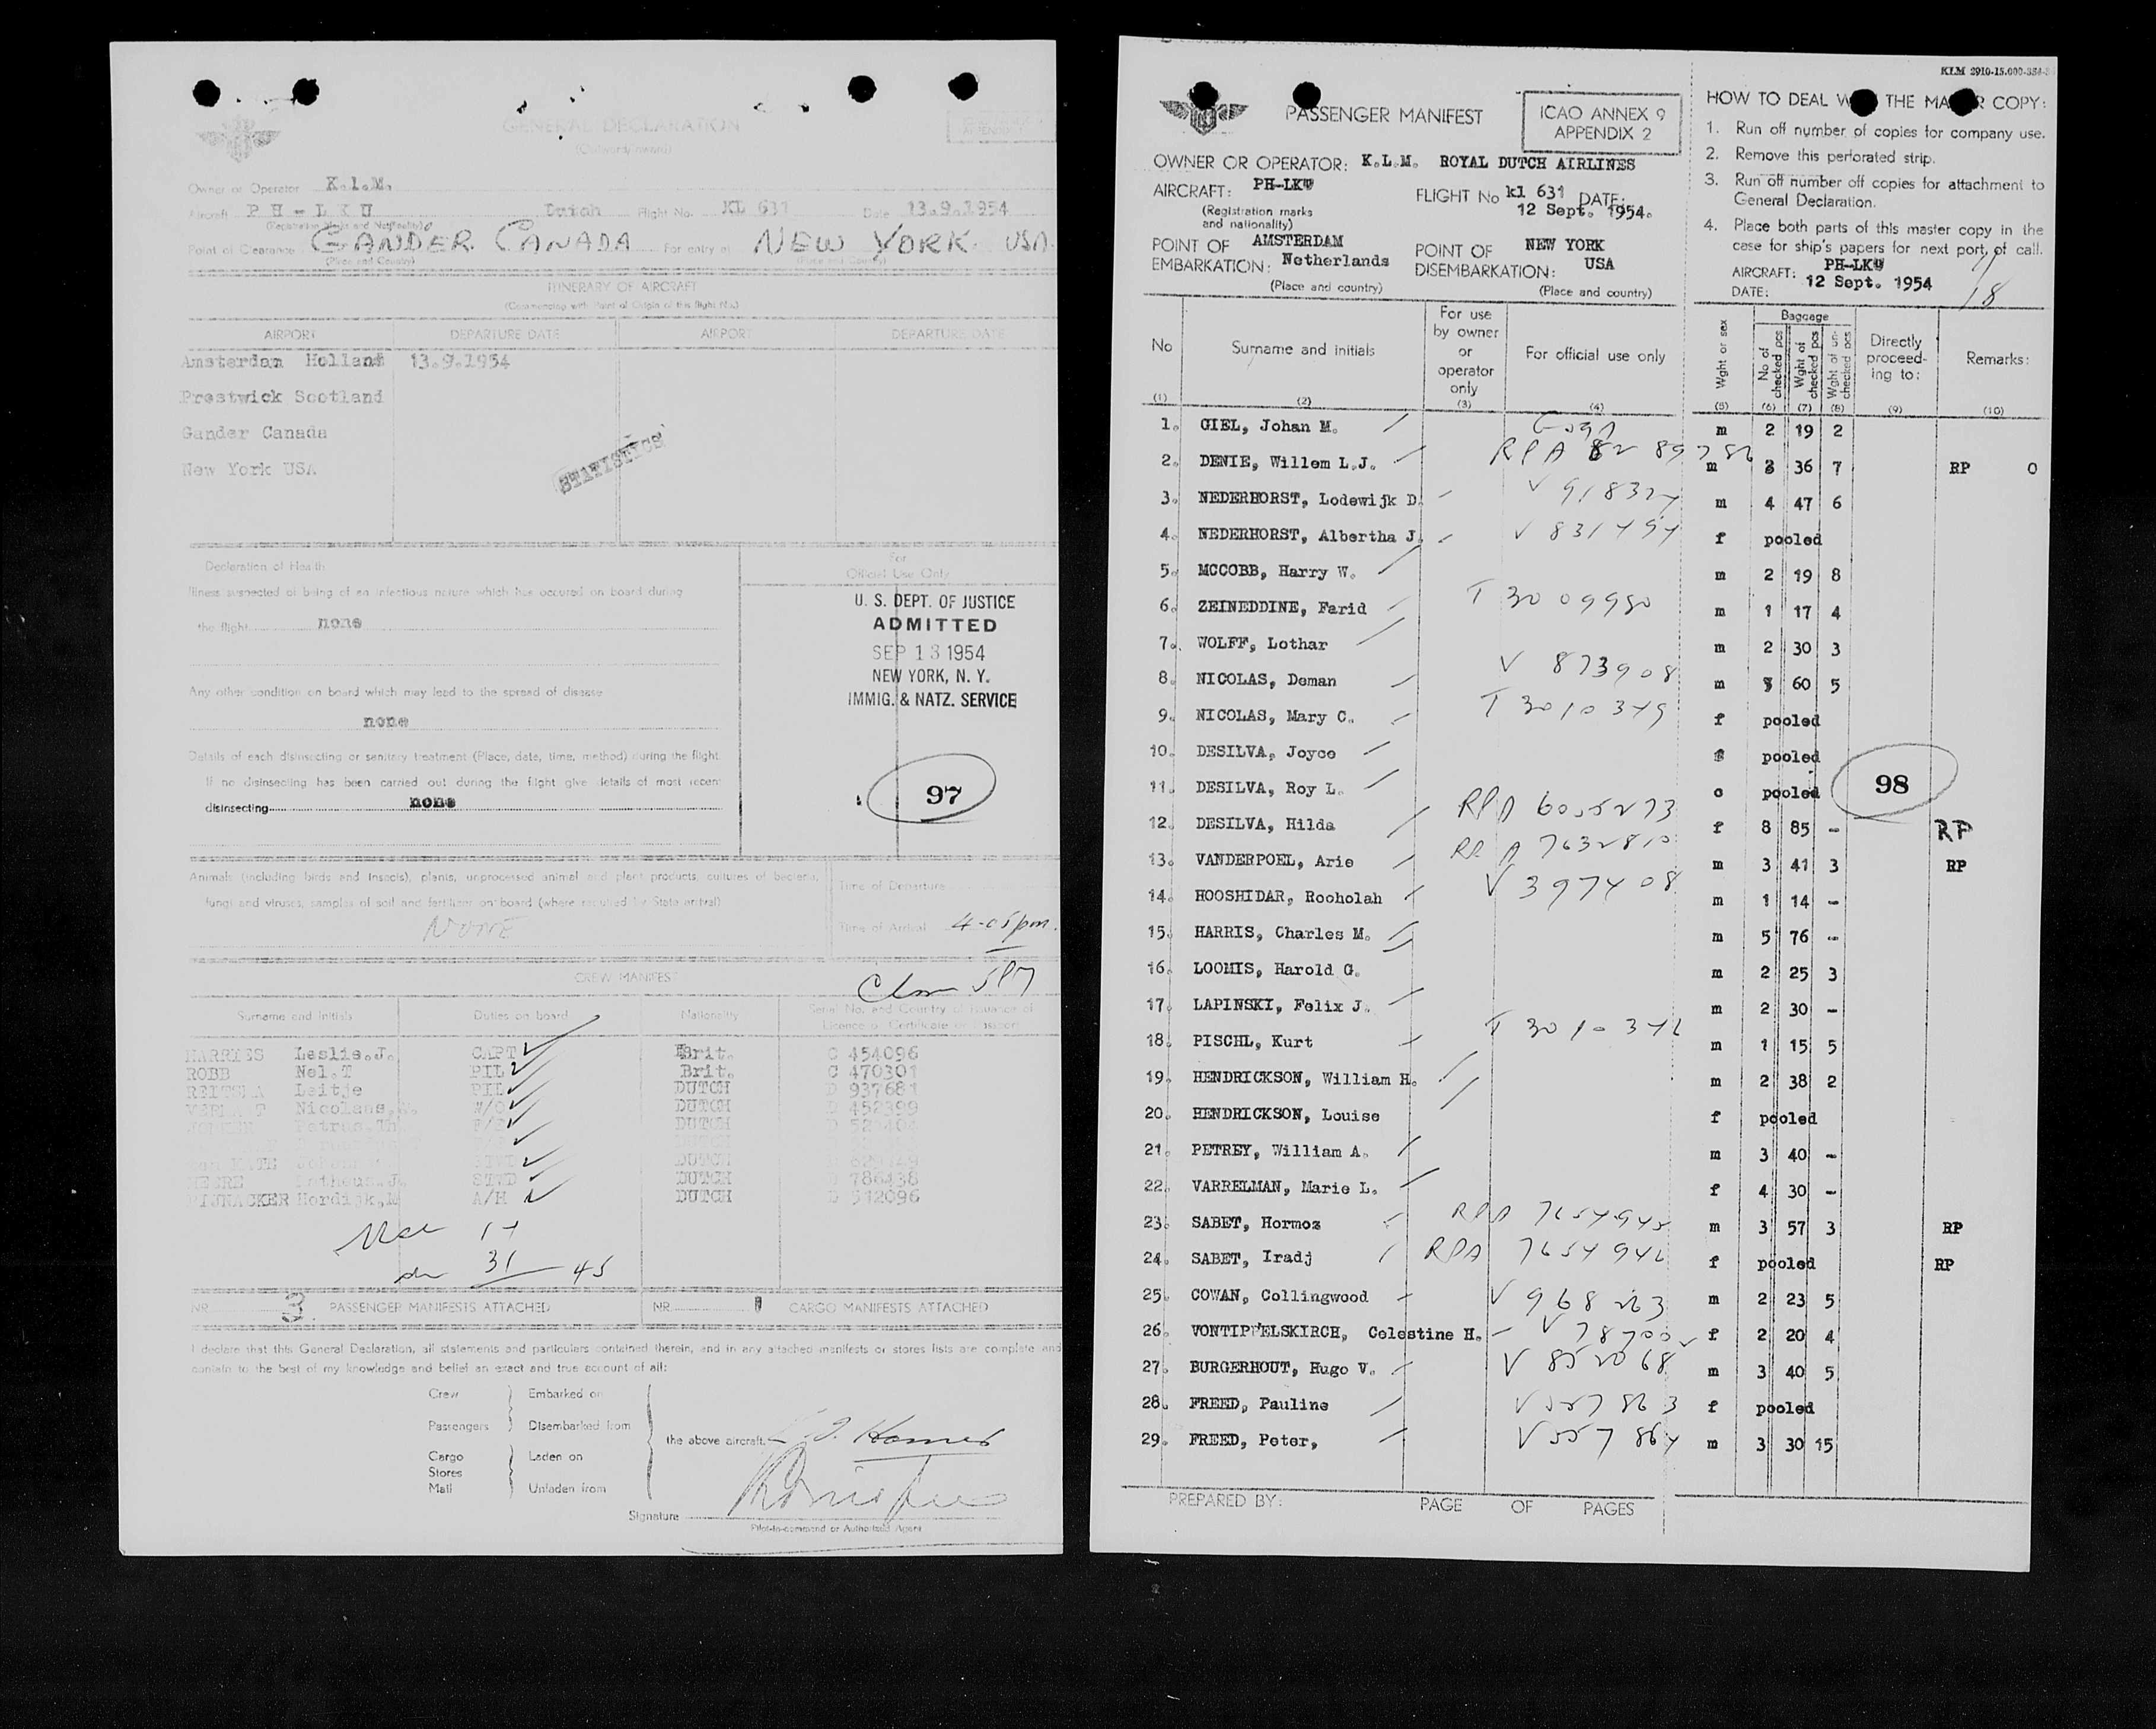 GENERAL DECLARATION
(Outward/Inward)
Owner or Operator K.l.M.
Aircraft PH-LKU Dutch Flight No. KL 631 Date 13.9.1954
(Registration Marks and Nationality)
Point of Clearance GANDER CANADA For entry at NEW YORK USA
(Place and Country) (Place and Country)
ITINERARY OF AIRCRAFT
AIRPORT DEPARTURE DATE AIRPORT DEPARTURE DATE
Amsterdam Holland 13.9.1954
Prestwick Scotland
Gander Canada
New York USA
STATISTICS
Declaration of Health
For
Official Use Only
Illness suspected of being of an infectious nature which has occured on board during
the flight none
U. S. DEPT. OF JUSTICE
ADMITTED
SEP 13 1954
NEW YORK, N. Y.
IMMIG. & NATZ. SERVICE
Any other condition on board which may lead to the spread of disease
none
Details of each disinsecting or sanitary treatment (Place, date, time, method) during the flight.
If no disinsecting has been carried out during the flight give details of most recent
disinsecting none
97
Animals (including birds and insects), plants, unprocessed animal and plant products, cultures of bacteria,
fungi and viruses, samples of soil and fertilizer on board (where required by State arrival)
NONE
Time of Departure
Time of Arrival 4-05pm.
CREW MANIFEST
Surname and Initials Duties on board Nationality
HARRIES Leslie.J. CAPT Brit. C 454096
ROBB Nel.T PIL Brit. C 470301
Leitje PIL DUTCH D 937681
Nicolaas DUTCH D 452399
DUTCH
DUTCH
STWD DUTCH
STWD DUTCH D 786438
Hordijk,M A/H DUTCH D 512096
31 45
NR. 3 PASSENGER MANIFESTS ATTACHED NR. 1 CARGO MANIFESTS ATTACHED
I declare that this General Declaration, all statements and particulars contained therein, and in any attached manifests or stores lists are complete and
contain to the best of my knowledge and belief an exact and true account of all:
Crew Embarked on
Passengers Disembarked from
the above aircraft.
Cargo Laden on
Stores
Mail Unladen from
Signature
Pilot-in-command or Authorised Agent
KLM 2910-15.000
PASSENGER MANIFEST
ICAO ANNEX 9
APPENDIX 2
OWNER OR OPERATOR: K.L.M. ROYAL DUTCH AIRLINES
AIRCRAFT: PH-LKU FLIGHT No kl 631 DATE: 12 Sept. 1954.
(Registration marks
and nationality)
POINT OF EMBARKATION: AMSTERDAM Netherlands
POINT OF DISEMBARKATION: NEW YORK USA
(Place and country) (Place and country)
HOW TO DEAL THE COPY:
1. Run off number of copies for company use.
2. Remove this perforated strip.
3. Run off number off copies for attachment to
General Declaration.
4. Place both parts of this master copy in the
case for ship's papers for next port of call.
AIRCRAFT: PH-LKU
DATE: 12 Sept. 1954
18
No Surname and initials For use by owner or operator only For official use only Wght or sex Baggage No of checked pcs Wght of checked pcs Wght of un-checked pcs Directly proceed-ing to: Remarks:
(1) (2) (3) (4) (5) (6) (7) (8) (9) (10)
1. GIEL, Johan M. m 2 19 2
2. DENIE, Willem L.J. RPA m 3 36 7 RP O
3. NEDERHORST, Lodewijk D. V 918324 m 4 47 6
4. NEDERHORST, Albertha J. V 831494 f pooled
5. MCCOBB, Harry W. m 2 19 8
6. ZEINEDDINE, Farid T 3009980 m 1 17 4
7. WOLFF, Lothar m 2 30 3
8. NICOLAS, Deman V 873908 m 60 5
9. NICOLAS, Mary C. T 3010349 f pooled
10. DESILVA, Joyce f pooled
11. DESILVA, Roy L. c pooled
98
12. DESILVA, Hilda RPA 6055273 f 8 85 - RP
13. VANDERPOEL, Arie RPA 7632810 m 3 41 3 RP
14. HOOSHIDAR, Rooholah V 397408 m 1 14 -
15. HARRIS, Charles M. m 5 76 -
16. LOOMIS, Harold G. m 2 25 3
17. LAPINSKI, Felix J. m 2 30 -
18. PISCHL, Kurt T 3010342 m 1 15 5
19. HENDRICKSON, William H. m 2 38 2
20. HENDRICKSON, Louise f pooled
21. PETREY, William A. m 3 40 -
22. VARRELMAN, Marie L. f 4 30 -
23. SABET, Hormoz RPA 7654945 m 3 57 3 RP
24. SABET, Iradj RPA 7654946 f pooled RP
25. COWAN, Collingwood V 968263 m 2 23 5
26. VONTIPPELSKIRCH, Celestine H. V 787002 f 2 20 4
27. BURGERHOUT, Hugo V. V 852068 m 3 40 5
28. FREED, Pauline V 557863 f pooled
29. FREED, Peter, V 557864 m 3 30 15
PREPARED BY: PAGE OF PAGES